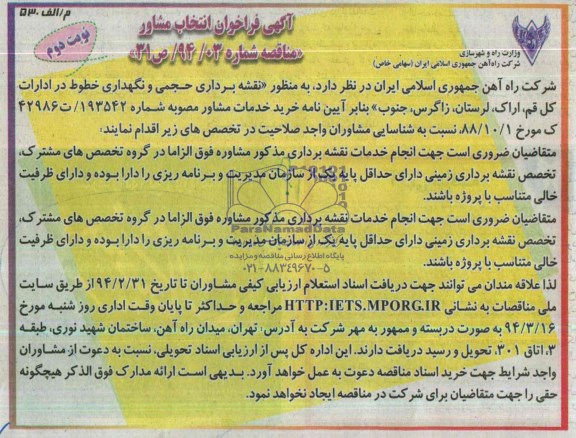 م/الف ۵۳۰
آگهی فراخوان انتخاب مشاور
«مناقصه شماره ۰۳/ ۹۴/ ص۳۱»
نوبت دوم
وزارت راه و شهرسازی
شرکت راه‌آهن جمهوری اسلامی ایران (سهامی خاص)
شرکت راه آهن جمهوری اسلامی ایران در نظر دارد، به منظور «نقشه برداری حجمی و نگهداری خطوط در ادارات
کل قم، اراک، لرستان، زاگرس، جنوب» بنابر آیین نامه خرید خدمات مشاور مصوبه شماره ۱۹۳۵۴۲/ ت۴۲۹۸۶
ک مورخ ۸۸/۱۰/۱، نسبت به شناسایی مشاوران واجد صلاحیت در تخصص های زیر اقدام نمایند:
متقاضیان ضروری است جهت انجام خدمات نقشه برداری مذکور مشاوره فوق الزاما در گروه تخصص های مشترک،
تخصص نقشه برداری زمینی دارای حداقل پایه یک از سازمان مدیریت و برنامه ریزی را دارا بوده و دارای ظرفیت
خالی متناسب با پروژه باشند.
متقاضیان ضروری است جهت انجام خدمات نقشه برداری مذکور مشاوره فوق الزاما در گروه تخصص های مشترک،
تخصص نقشه برداری زمینی دارای حداقل پایه یک از سازمان مدیریت و برنامه ریزی را دارا بوده و دارای ظرفیت
خالی متناسب با پروژه باشند.
ParsNamadData
پایگاه اطلاع رسانی مناقصه و مزایده
۰۲۱-۸۸۳۴۹۶۷۰-۵
لذا علاقه مندان می توانند جهت دریافت اسناد استعلام ارزیابی کیفی مشاوران تا تاریخ ۹۴/۲/۳۱ از طریق سایت
ملی مناقصات به نشانی HTTP:IETS.MPORG.IR مراجعه و حداکثر تا پایان وقت اداری روز شنبه مورخ
۹۴/۳/۱۶ به صورت دربسته و ممهور به مهر شرکت به آدرس: تهران، میدان راه آهن، ساختمان شهید نوری، طبقه
۳، اتاق ۳۰۱، تحویل و رسید دریافت دارند. این اداره کل پس از ارزیابی اسناد تحویلی، نسبت به دعوت از مشاوران
واجد شرایط جهت خرید اسناد مناقصه دعوت به عمل خواهد آورد. بدیهی است ارائه مدارک فوق الذکر هیچگونه
حقی را جهت متقاضیان برای شرکت در مناقصه ایجاد نخواهد نمود.